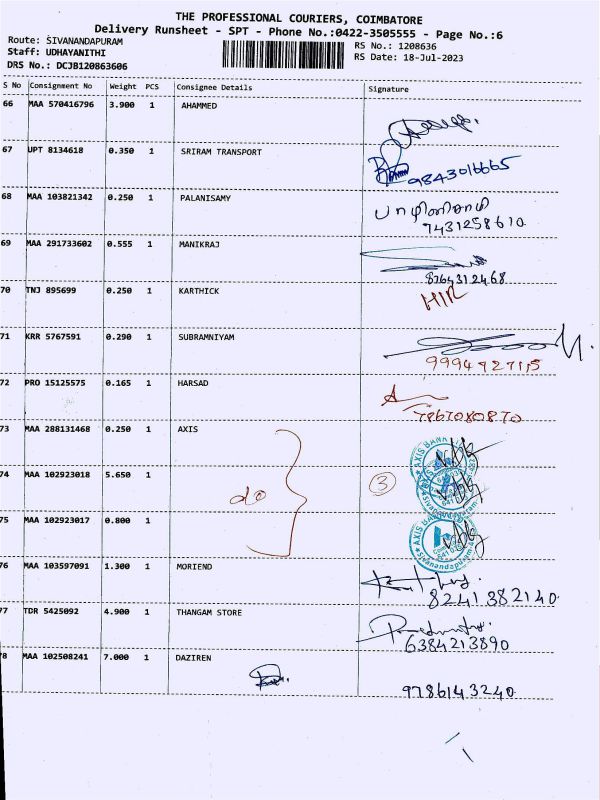 THE PROFESSIONAL COURIERS, COIMBATORE
Delivery Runsheet - SPT - Phone No.:0422-3505555 - Page No.:6
Route: SIVANANDAPURAM
Staff: UDHAYANITHI
DRS No.: DCJB120863606
RS No.: 1208636
RS Date: 18-Jul-2023
S No Consignment No Weight PCS Consignee Details Signature
66 MAA 570416796 3.900 1 AHAMMED
67 UPT 8134618 0.350 1 SRIRAM TRANSPORT
9843016665
68 MAA 103821342 0.250 1 PALANISAMY
பாழினிசாமி
7431258610
69 MAA 291733602 0.555 1 MANIKRAJ
8764312468
70 TNJ 895699 0.250 1 KARTHICK
HIR
71 KRR 5767591 0.290 1 SUBRAMNIYAM
9994927115
72 PRO 15125575 0.165 1 HARSAD
7867080870
73 MAA 288131468 0.250 1 AXIS
AXIS BANK
74 MAA 102923018 5.650 1
do
3
Sivanandapuram
75 MAA 102923017 0.800 1
AXIS BANK
Sivanandapuram
76 MAA 103597091 1.300 1 MORIEND
8241382140
77 TDR 5425092 4.900 1 THANGAM STORE
6384213890
78 MAA 102508241 7.000 1 DAZIREN
9786143240